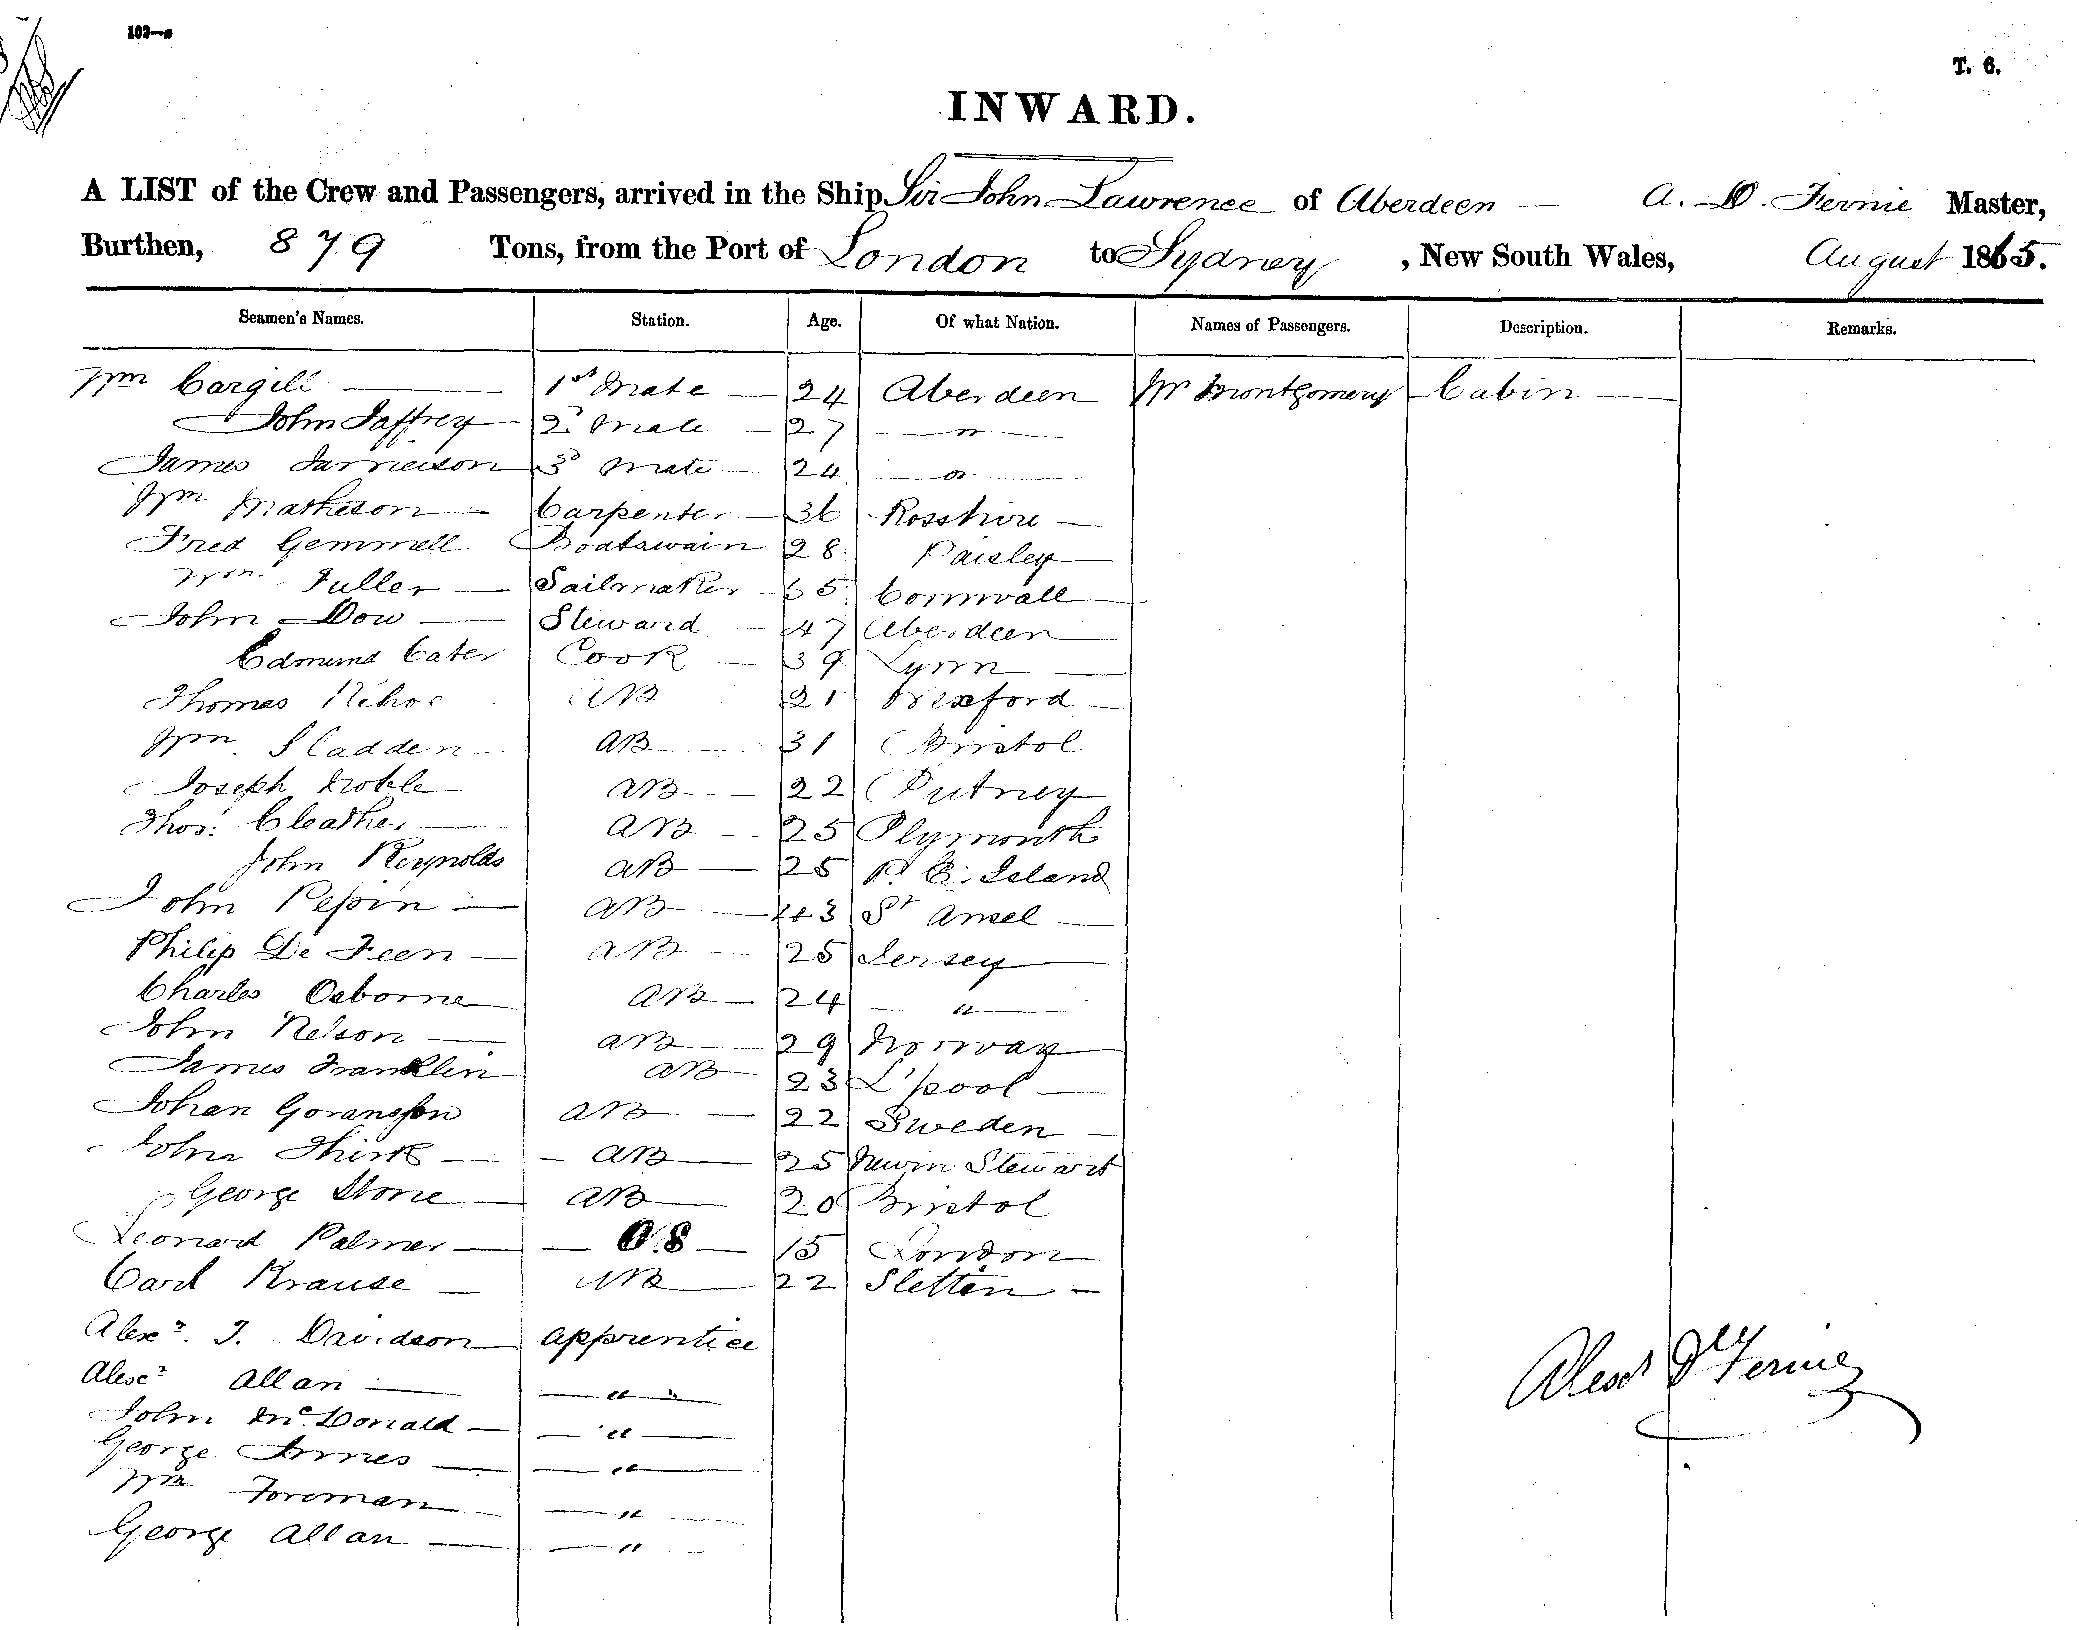 102—a
T. 6.
INWARD.
A LIST of the Crew and Passengers, arrived in the Ship Sir John Lawrence of Aberdeen — A. D. Fernie Master,
Burthen, 879 Tons, from the Port of London to Sydney, New South Wales, August 1865.
Seamen's Names. Station. Age. Of what Nation. Names of Passengers. Description. Remarks.
Wm Cargill — 1st Mate — 24 Aberdeen Mr Montgomery Cabin —
John Jaffrey 2d Mate — 27 — " —
James Jamieson 3d Mate — 24 — " —
Wm Matheson — Carpenter — 36 Rosshire —
Fred Gemmell Boatswain 28 Paisley —
Wm Fuller — Sailmaker — 65 Cornwall —
John Dow — Steward — 47 Aberdeen —
Edmund Cater Cook — 39 Lynn —
Thomas Kehoe AB 21 Wexford —
Wm Sladden AB — 31 Bristol
Joseph Noble AB — 22 Putney
Thos. Cleather — AB — 25 Plymouth
John Reynolds AB — 25 P. E. Island
John Pepin — AB — 43 St Ansel —
Philip De Feen — AB — 25 Jersey —
Charles Osborne AB — 24 — " —
John Nelson — AB — 29 Norway
James Franklin AB — 23 L'pool —
Johan Goransson AB — 22 Sweden —
John Thirk — — AB — 25 Stewart
George Stone — AB — 20 Bristol
Leonard Palmer — — O.S — 15 London
Carl Krause — AB — 22 Stettin —
Alexr. J. Davidson Apprentice
Alexr Allan — — " " —
John McDonald — — " —
George Innes — — " —
Wm Foreman — — " —
George Allan — — " —
Alexr D Fernie